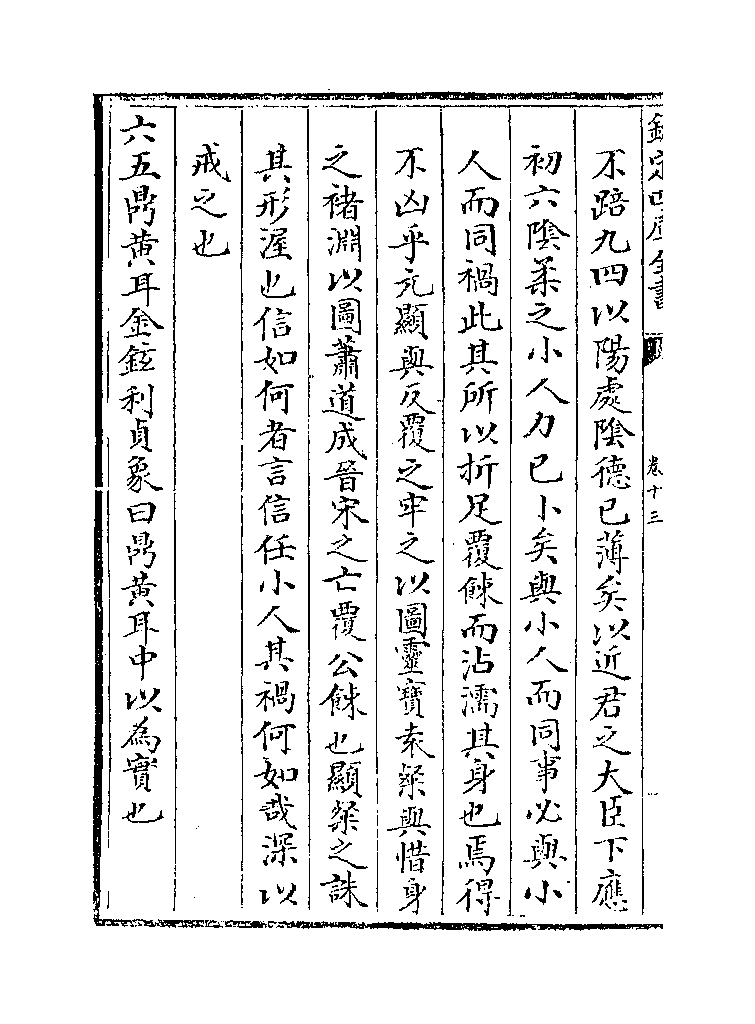 欽定四庫全書 卷十三
不踣九四以陽處隂德已薄矣以近君之大臣下應
初六隂柔之小人力已小矣與小人而同事必與小
人而同禍此其所以折足覆餗而沾濡其身也焉得
不凶乎元顯與反覆之牢之以圖靈寶袁粲與惜身
之褚淵以圖蕭道成晉宋之亡覆公餗也顯粲之誅
其形渥也信如何者言信任小人其禍何如哉深以
戒之也
六五鼎黄耳金鉉利貞象曰鼎黄耳中以為實也